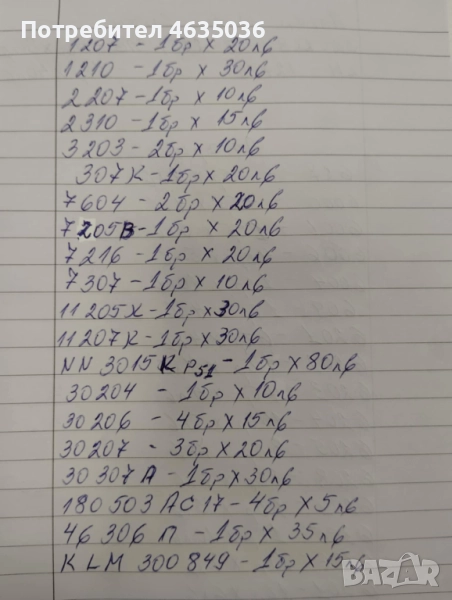 Потребител 4635036
1207 - 1бр x 20лв
1210 - 1бр x 30лв
2207 - 1бр x 10лв
2310 - 1бр x 15лв
3203 - 2бр x 10лв
307K - 1бр x 20лв
7604 - 2бр x 20лв
7205B - 1бр x 20лв
7216 - 1бр x 20лв
7307 - 1бр x 10лв
11205K - 1бр x 30лв
11207K - 1бр x 30лв
NN 3015K P51 - 1бр x 80лв
30204 - 1бр x 10лв
30206 - 4бр x 15лв
30207 - 3бр x 20лв
30307A - 1бр x 30лв
180503AC17 - 4бр x 5лв
46306П - 1бр x 35лв
KLM 300849 - 1бр x 15лв
BAZAR